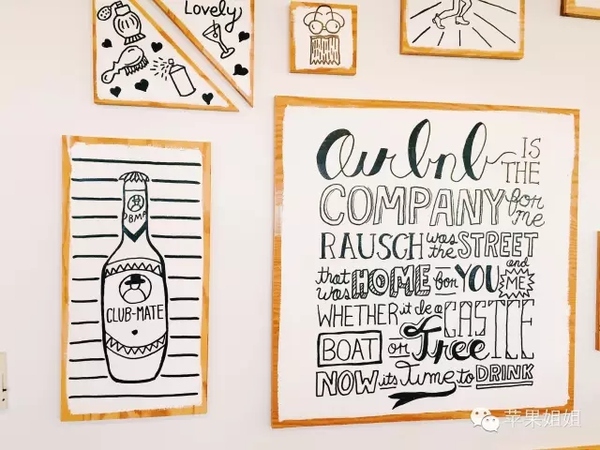 Lovely
DBMP
CLUB-MATE
airbnb IS THE
COMPANY for me
RAUSCH was the STREET
that was HOME for YOU and ME
WHETHER it be a CASTLE
BOAT or Tree
NOW its Time to DRINK
苹果姐姐